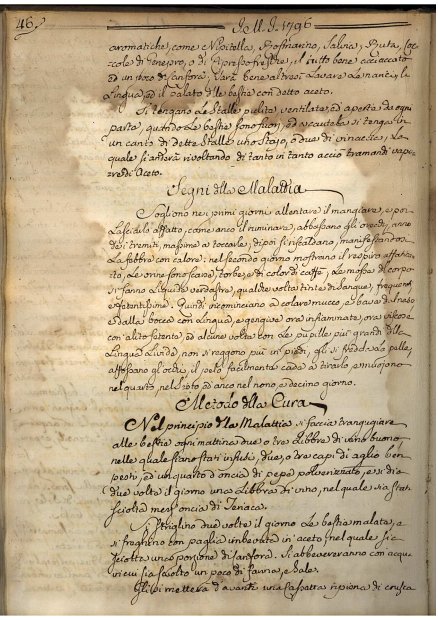 46. I. M. I. 1796
aromatiche, come Nepitella, Rosmarino, Salvia, Ruta, Coc-
cole di Ginepro, o di Cipresso fresche, il tutto bene acciaccato
ed un poco di Canfora. Sarà bene altresì Lavare Le nari, la
Lingua, ed il palato delle bestie con detto aceto.
Si tengano Le Stalle pulite, ventilate, ed aperte da ogni
parte, quando Le bestie sono fuori, ed a cautela si tenga in
un canto di dette Stalle uno Stajo, o due di vinacce, La
quale si anderà rivoltando di tanto in tanto acciò tramandi vapo-
re di Aceto.
Segni della Malattia
Sogliono ne i primi giorni allentare il mangiare, e poi
Lasciarlo affatto, come anco il ruminare, abbassano gli orecchi, anno
de i tremiti, massime a toccarle, dipoi si riscaldano, manifestandosi
La febbre con calore: nel secondo giorno mostrano il respiro affan-
nato, Le orine sono scarse, torbe, e di color di caffè, Le mosse di corpo
si fanno Liquide verdastre, qualche volta tinte di sangue, frequenti
e fetentissime. Quindi incominciano a colare mucco, e bava dal naso
e dalla bocca con Lingua, e gengive ora infiammate, ora viscose
con alito fetente, ed alcune volte con Le pupille più grandi della
Lingua Livida, non si reggono più in piedi, gli si fredda la pelle,
affossano gl'occhi, il pelo facilmente cade a tirarlo, e muojono
nel quarto, nel sesto ed anco nel nono, e decimo giorno.
Metodo della Cura
Nel principio della Malattia si faccia trangugiare
alle bestie ogni mattina due o tre Libbre di vino buono
nelle quale siano stati infusi due, o tre capi di aglio ben
pesti, ed un quarto d'oncia di pepe polverizzato, e si dia
due volte il giorno una Libbra di vino, nel quale sia stata
sciolta mezz'oncia di Teriaca.
Si striglino due volte il giorno Le bestie malate, e
si freghino con paglia imbevuta in aceto, nel quale sia
sciolta una porzione di canfora. Si abbevereranno con acqua
in cui sia sciolto un poco di farina, e Sale.
Gli si metterà d'avanti una Cassetta ripiena di crusca